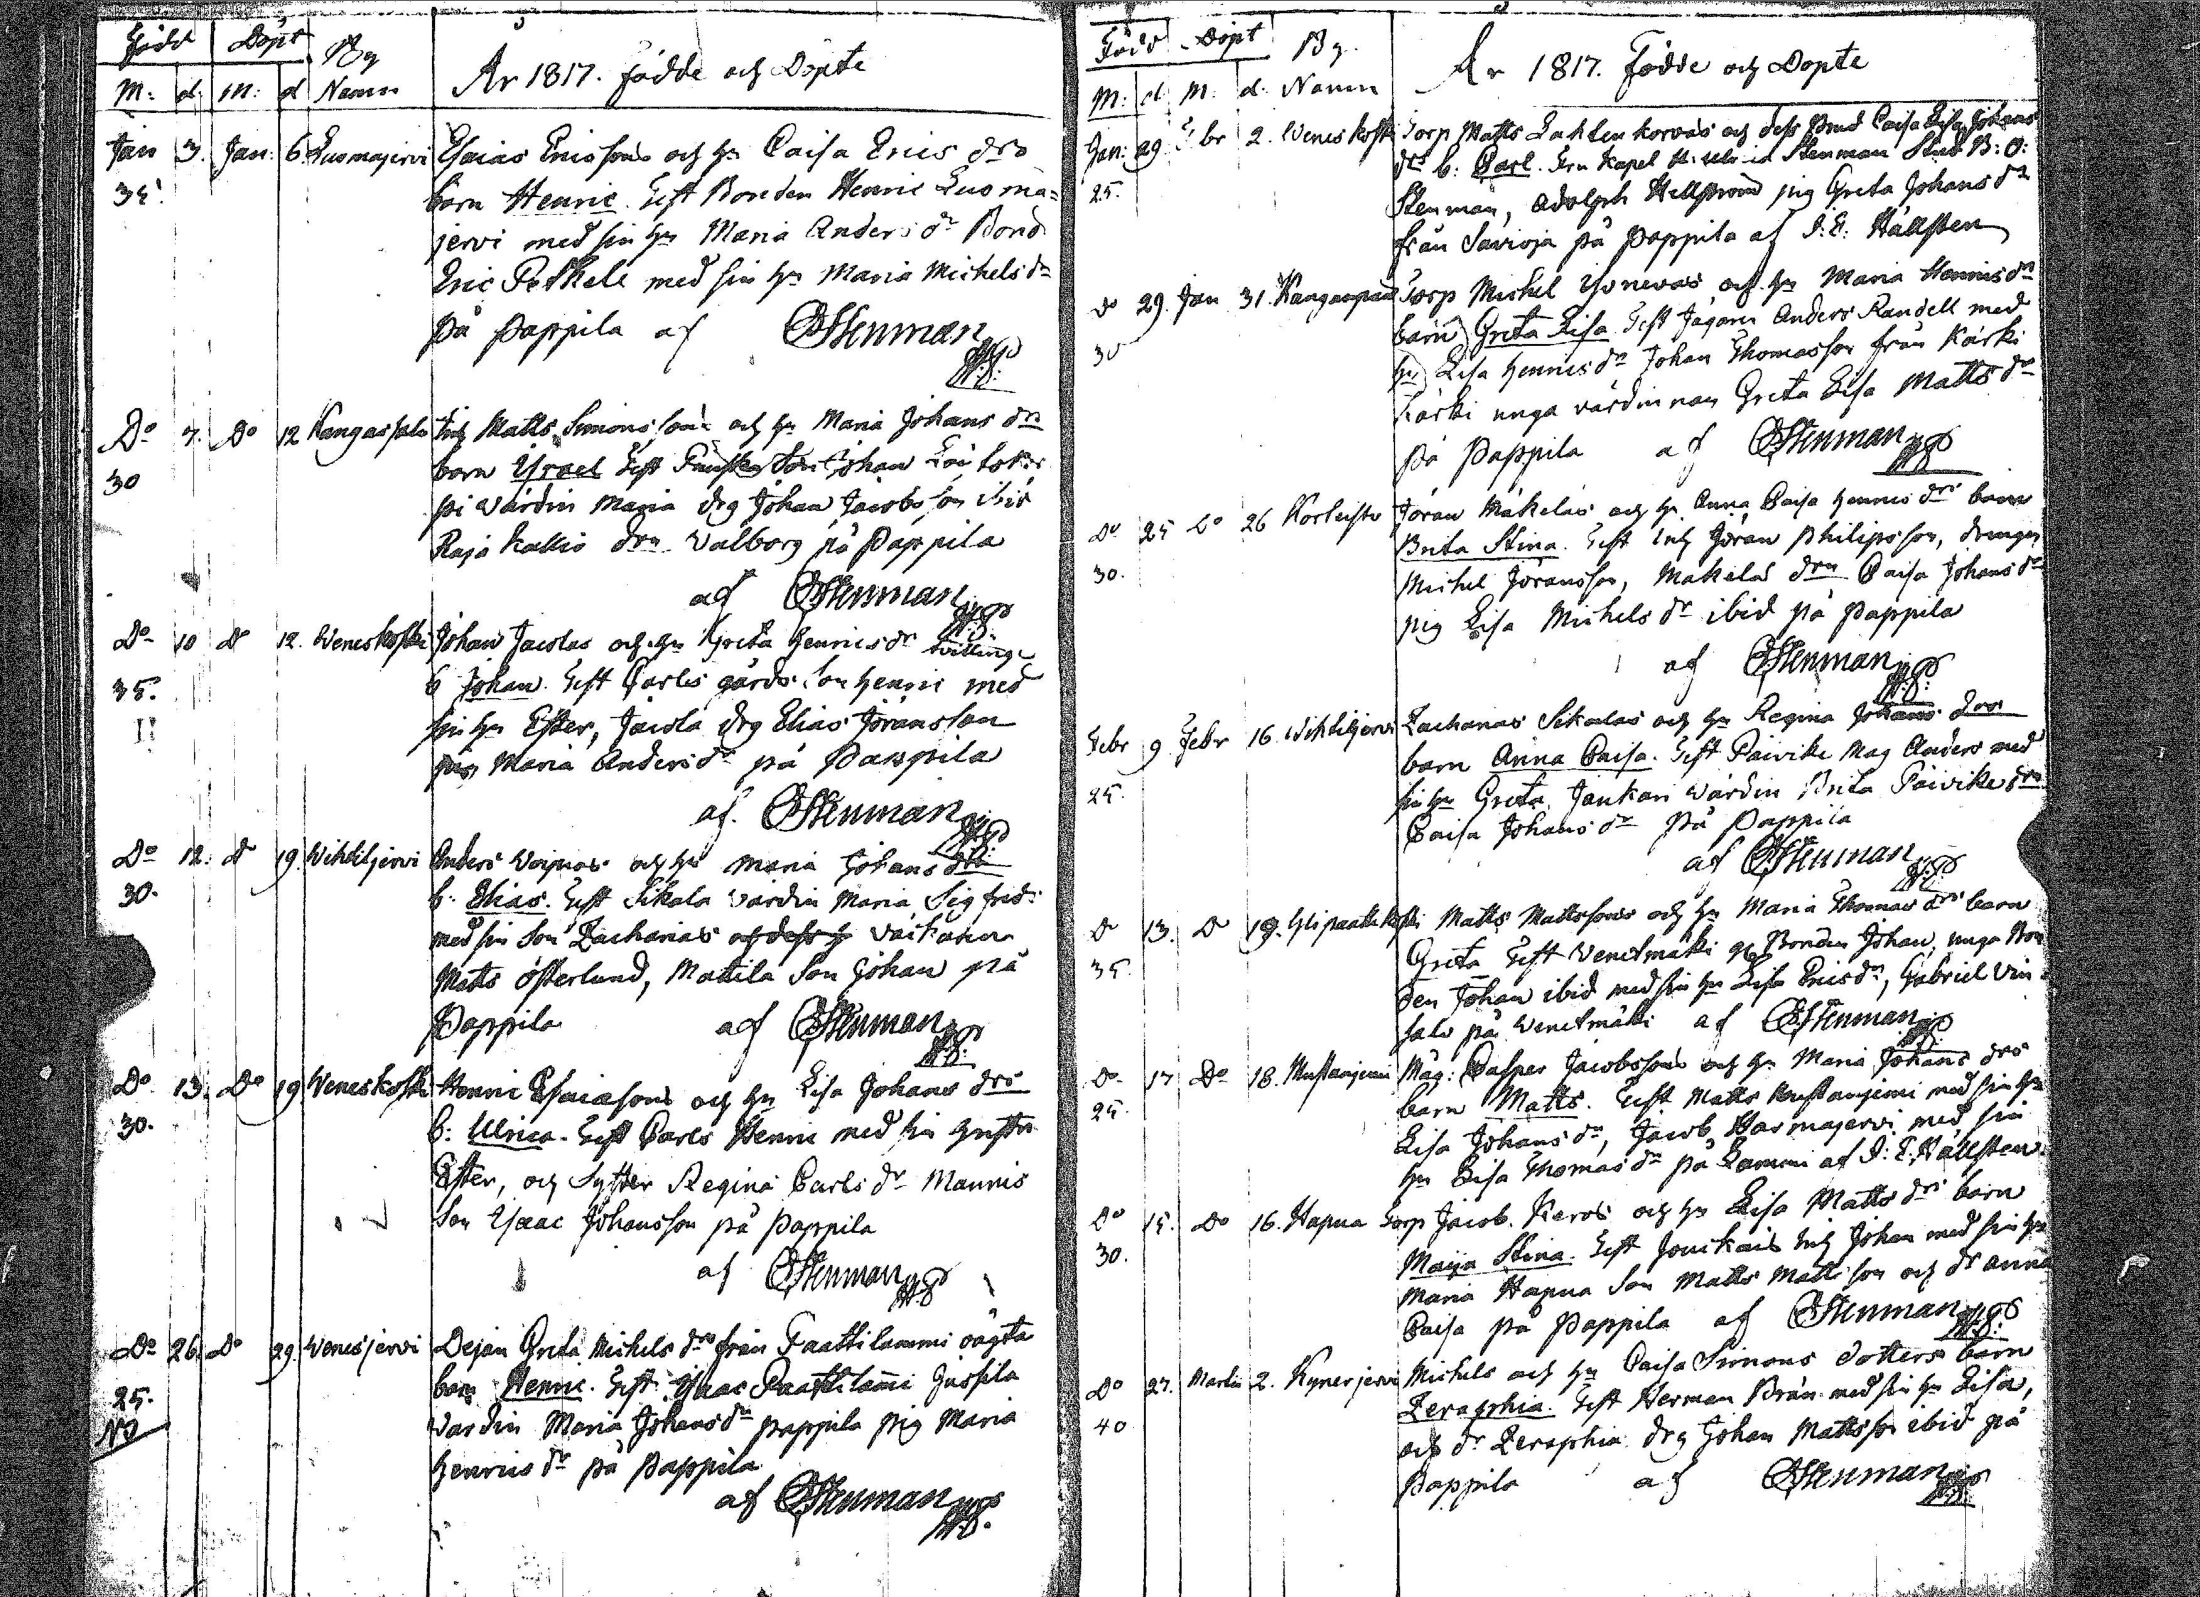 Född Döpt By
M: d: M: d Namn
År 1817. födde och Döpte
Jan 3. Jan: 6. Luomajervi Esaias Ericssons och h:u Caisa Erics drs
35. barn Henric. Test Bonden Henric Luoma=
jervi med sin h:u Maria Anders dr Bond
Eric Pethele med sin h:u Maria Michels dr
På Pappila af EStenman
Do 7. Do 12 Kangassalo Inh Matts Simonssons och h:u Maria Johans drs
30 barn Ysrael Test Johan
värdin Maria drg Johan Jacobsson ibid
Rajakallio drn Walborg på Pappila
af EStenman
Do 10 Do 12. Weneskoski Johan Jacolas och h:u Greta Henrics dr tvilling
35. b Johan. Test Carls gårds Son Henric med
II sin h:u Ester, Jacola drg Elias Jöransson
pig Maria Anders dr på Pappila
af. EStenman
Do 12. Do 19. Wihdiljervi Anders Woipios och h:u Maria Johans drs
30. b: Elias. Test Sikala värdin Maria Sigfrids
med sin Son Zacharias och dess h
Matts Österlund, Matila Son Johan på
Pappila af EStenman
Do 13. Do 19 Weneskoski Henric Esaiasons och h:u Lisa Johans drs
30. b: Ulrica. Test Carls Henric med sin hustru
Ester, och Syster Regina Carls dr Mannis
Son Ysaac Johansson på Pappila
af EStenman
Do 26. Do 29. Wenesjervi Dejan Greta Michels drs från Paattilammi oägta
25. barn Henric. Test Ysaac Paattilammi Jussila
N3 värdin Maria Johans dr pappila pig Maria
Henrics dr på Pappila
af EStenman
Född Döpt By.
M: d M: d. Namn
År 1817. Födde och Döpte
Jan: 29 Fbr 2. Weneskoski Torp Matts Lahtenkorvas och dess Brud Caisa Lisa Johans
25. drs b: Carl. Stenman Stud B: O:
Stenman, Adolph Hellström pig Greta Johans dr
från Savioja på Pappila af I. E. Hällsten
do 29. Jan 31. Kangaspää Torp Michel Yonevas och h:u Maria Henrics dr
30 barn Greta Lisa Test Jägaren Anders Randell med
h:u Lisa Henrics dr Johan Thomasson från Kärki
Kärki unga värdinnan Greta Lisa Matts dr
På Pappila af EStenman
Do 25 Do 26 Korhuste Jöran Mäkelas och h:u Anna Caisa Henrics drs barn
30. Brita Stina. Test Inh Jöran Philipsson, drengen
Michel Jöransson, Mäkelas drn Caisa Johans dr
pig Lisa Michels dr ibid på Pappila
af EStenman
Febr 9 Febr 16. Wihdiljervi Zacharias Sikalas och h:u Regina Johans drs
25. barn Anna Caisa. Test Päivike Mag Anders med
sin h:u Greta, Jaukari värdin Brita Päivike drn
Caisa Johans dr På Pappila
af EStenman
Do 13. Do 19. Ylipaattikoski Matts Mattssons och h:u Maria Thomas drs barn
35. Greta Test Wenetmäki gl Bonden Johan, unga Bon
den Johan ibid med sin h:u Lisa Erics dr, Gabriel Vin
salo på Wenetmäki af EStenman
Do 17 Do 18. Mustanjemi Måg: Casper Jacobssons och h:u Maria Johans drs
25. barn Matts. Test Matts Mustanjemi med sin h:u
Lisa Johans dr, Jacob Harmajervi med sin
h:u Lisa Thomas dr på Lammi af I: E. Hällsten.
Do 15. Do 16. Hapua Torp Jacob Keros och h:u Lisa Matts drs barn
30. Maija Stina. Test Jouckais Inh Johan med sin h:u
Maria Hapua Son Matts Mattsson och dr Anna
Caisa på Pappila af EStenman
Do 27. Martii 2. Kynerjervi Michels och h:u Caisa Simons dotters barn
40 Zeraphia. Test Herman Brän med sin h:u Lisa,
och dr Zeraphia drg Johan Mattsson ibid på
Pappila af EStenman